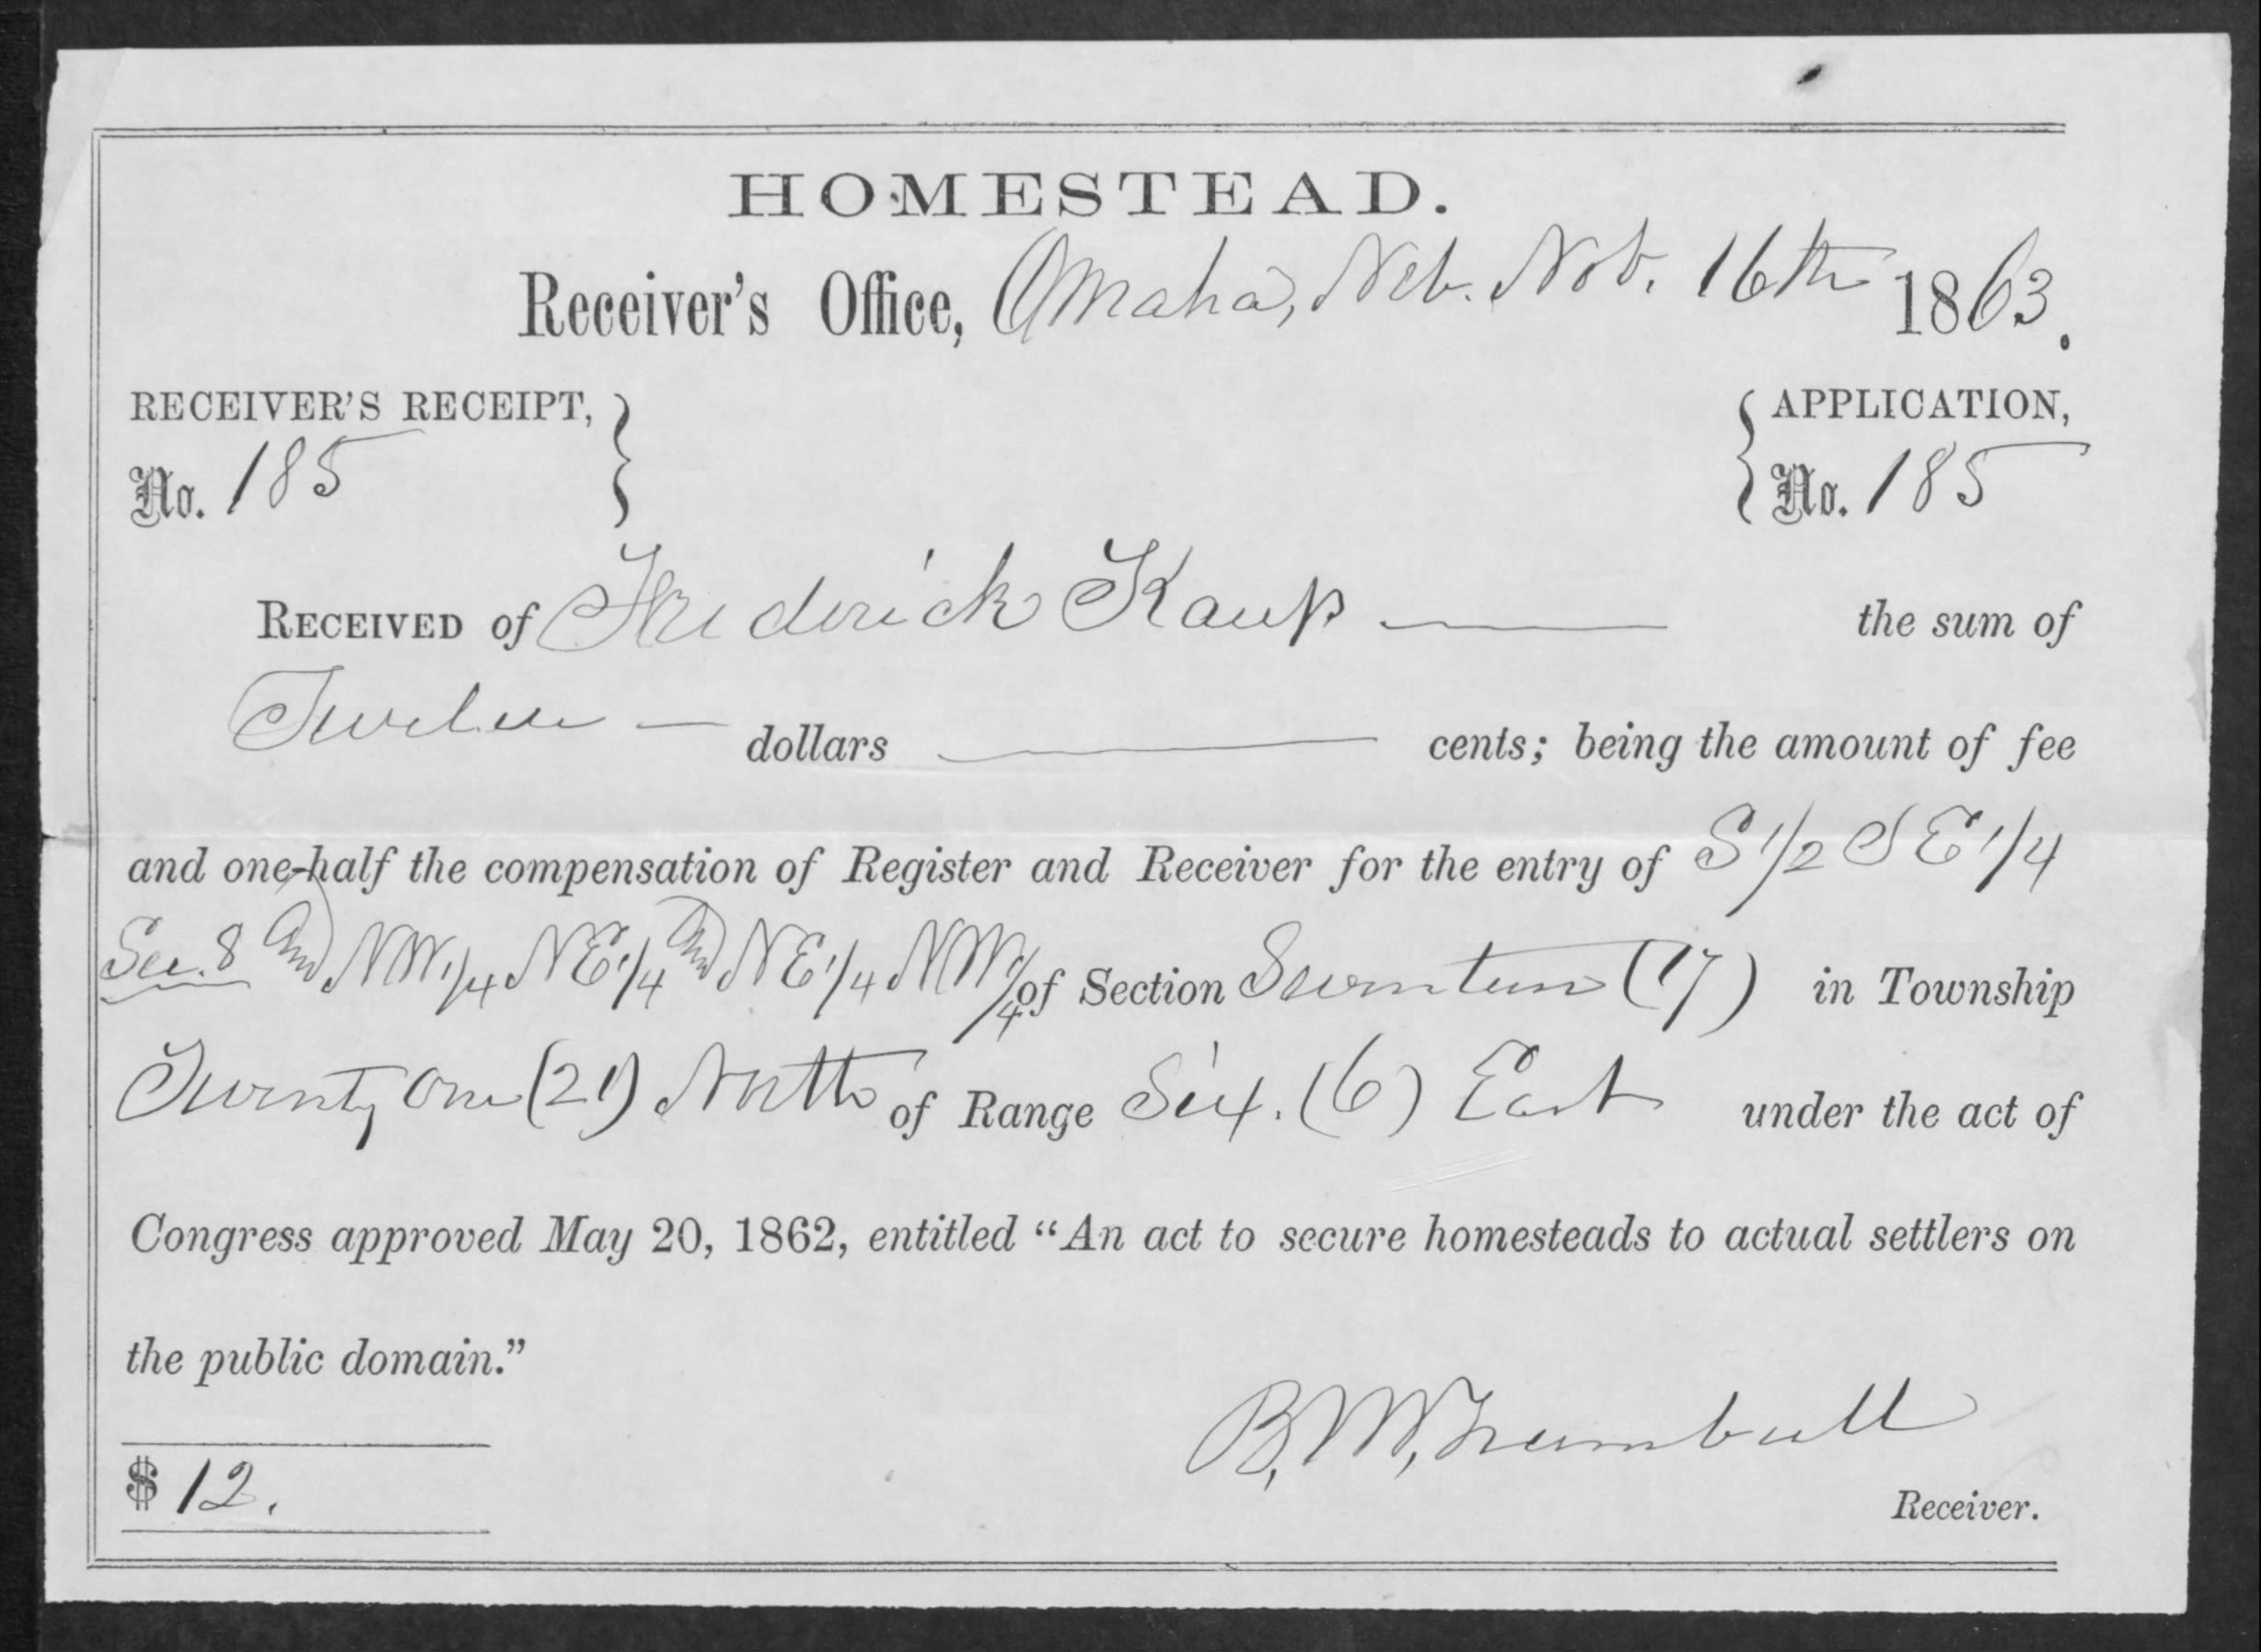 HOMESTEAD.
Receiver's Office, Omaha, Neb. Nov. 16th 1863.
RECEIVER'S RECEIPT, APPLICATION,
No. 185 No. 185
RECEIVED of Frederick Kaup the sum of
Twelve — dollars — cents; being the amount of fee
and one-half the compensation of Register and Receiver for the entry of S 1/2 S E 1/4
Sec. 8 and NW 1/4 NE 1/4 and NE 1/4 NW 1/4 of Section Seventeen (17) in Township
Twenty One (21) North of Range Six. (6) East under the act of
Congress approved May 20, 1862, entitled “An act to secure homesteads to actual settlers on
the public domain.”
B. W. Trumbull
$ 12.
Receiver.